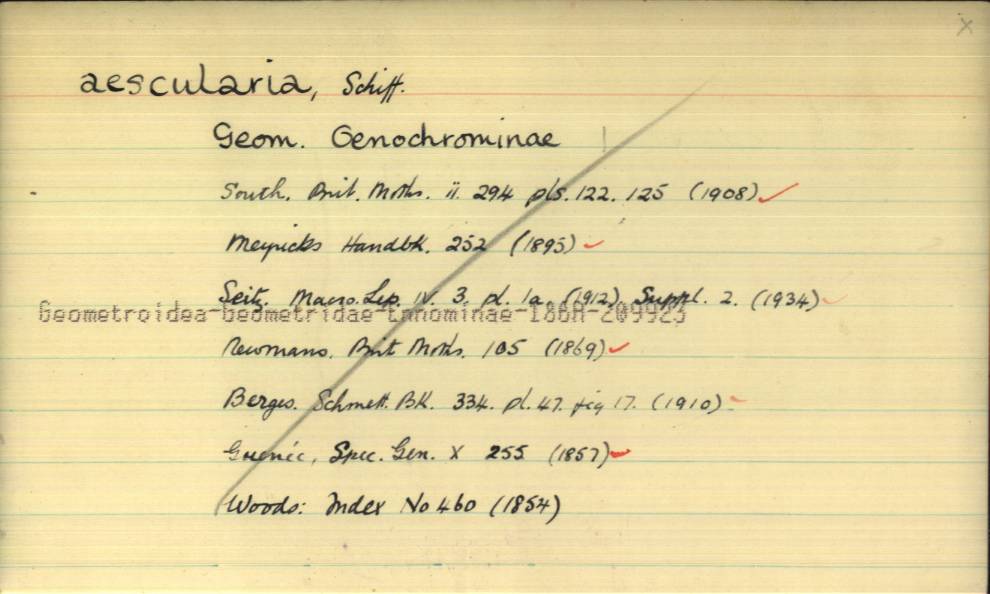 x
aescularia, Schiff.
Geom. Oenochrominae
South. Brit. Moths. ii. 294 pls. 122. 125 (1908)
Meyricks Handbk. 252 (1895)
Seitz. Macro. Lep. IV. 3. pl. 1a. (1912). Suppl. 2. (1934)
Geometroidea-Geometridae-Ennominae-186A-209923
Newmans. Brit Moths. 105 (1869)
Berges. Schmett. Bk. 334. pl. 47. fig 17. (1910)
Guenée, Spec. Gen. X 255 (1857)
Woods: Index No 460 (1854)